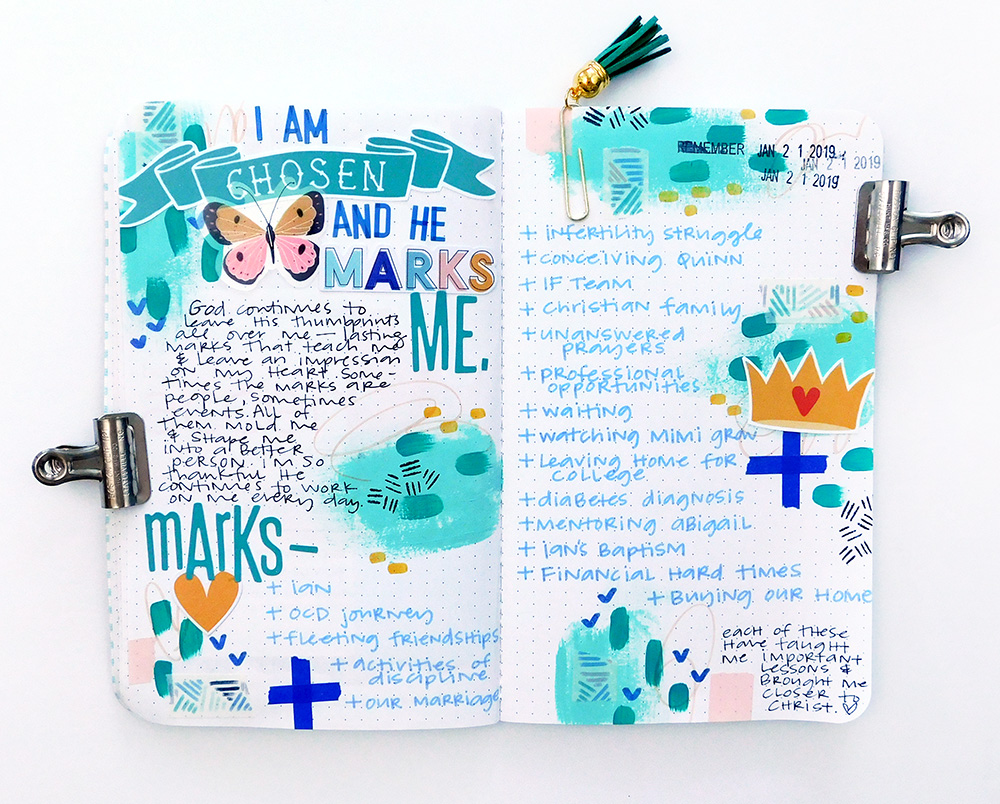 I AM
CHOSEN
AND HE
MARKS
ME.
God continues to
leave His thumbprints
all over me — lasting
marks that teach me
& leave an impression
on my heart. Some-
times the marks are
people, sometimes
events. All of
them mold me
& shape me
into a better
person. I'm so
thankful He
continues to work
on me every day.
mArKs-
+ ian
+ OCD journey
+ fleeting friendships
+ activities of
discipline
+ our marriage
REMEMBER JAN 2 1 2019
JAN 2 1 2019
JAN 2 1 2019
+ infertility struggle
+ conceiving Quinn
+ IF Team
+ Christian family
+ unanswered
prayers
+ professional
opportunities
+ waiting
+ watching Mimi grow
+ Leaving Home for
college
+ diabetes diagnosis
+ mentoring abigail
+ ian's Baptism
+ Financial Hard times
+ Buying our Home
each of these
Have taught
me important
Lessons &
Brought me
closer to
CHrist.